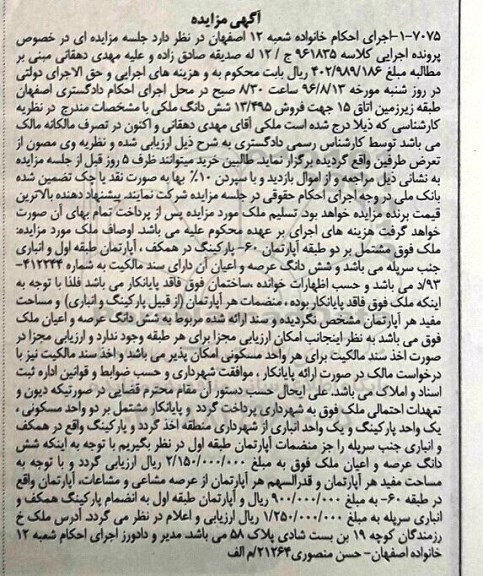 آگهی مزایده
۱-۷۰۷۵-اجرای احکام خانواده شعبه ۱۲ اصفهان در نظر دارد جلسه مزایده ای در خصوص
پرونده اجرایی کلاسه ۹۶۱۸۳۵ ج / ۱۲ له صدیقه صادق زاده و علیه مهدی دهقانی مبنی بر
مطالبه مبلغ ۴۰۲/۹۸۹/۱۸۶ ریال بابت محکوم به و هزینه های اجرایی و حق الاجرای دولتی
در روز شنبه مورخه ۹۶/۸/۱۳ ساعت ۸/۳۰ صبح در محل اجرای احکام دادگستری اصفهان
طبقه زیرزمین اتاق ۱۵ جهت فروش ۱۳/۴۹۵ شش دانگ ملکی با مشخصات مندرج در نظریه
کارشناسی که ذیلا درج شده است ملکی آقای مهدی دهقانی و اکنون در تصرف مالکانه مالک
می باشد توسط کارشناس رسمی دادگستری به شرح ذیل ارزیابی شده و نظریه وی مصون از
تعرض طرفین واقع گردیده برگزار نماید. طالبین خرید میتوانند ظرف ۵ روز قبل از جلسه مزایده
به نشانی ذیل مراجعه و از اموال بازدید و با سپردن ۱۰٪ بها به صورت نقد یا چک تضمین شده
بانک ملی در وجه اجرای احکام حقوقی در جلسه مزایده شرکت نمایند. پیشنهاد دهنده بالاترین
قیمت برنده مزایده خواهد بود. تسلیم ملک مورد مزایده پس از پرداخت تمام بهای آن صورت
خواهد گرفت هزینه های اجرای بر عهده محکوم علیه می باشد. اوصاف ملک مورد مزایده:
ملک فوق مشتمل بر دو طبقه آپارتمان ۶۰- پارکینگ در همکف ، آپارتمان طبقه اول و انباری
جنب سرپله می باشد و شش دانگ عرصه و اعیان آن دارای سند مالکیت به شماره ۴۱۲۲۴۴-
۹۳/د می باشد و حسب اظهارات خوانده ،ساختمان فوق فاقد پایانکار می باشد فلذا با توجه به
اینکه ملک فوق فاقد پایانکار بوده ، منضمات هر آپارتمان (از قبیل پارکینگ و انباری) و مساحت
مفید هر آپارتمان مشخص نگردیده و سند ارائه شده مربوط به شش دانگ عرصه و اعیان ملک
فوق می باشد به نظر اینجانب امکان ارزیابی مجزا برای هر طبقه وجود ندارد و ارزیابی مجزا در
صورت اخذ سند مالکیت برای هر واحد مسکونی امکان پذیر می باشد و اخذ سند مالکیت نیز با
درخواست مالک در صورت ارائه پایانکار ، موافقت شهرداری و حسب ضوابط و قوانین اداره ثبت
اسناد و املاک می باشد. علی ایحال حسب دستور آن مقام محترم قضایی در صورتیکه دیون و
تعهدات احتمالی ملک فوق به شهرداری پرداخت گردد و پایانکار مشتمل بر دو واحد مسکونی ،
یک واحد پارکینگ و یک واحد انباری از شهرداری منطقه اخذ گردد و پارکینگ واقع در همکف
و انباری جنب سرپله را جز منضمات آپارتمان طبقه اول در نظر بگیریم با توجه به اینکه شش
دانگ عرصه و اعیان ملک فوق به مبلغ ۲/۱۵۰/۰۰۰/۰۰۰ ریال ارزیابی گردد و با توجه به
مساحت مفید هر آپارتمان و قدرالسهم هر آپارتمان از عرصه مشاعی و مشاعات، آپارتمان واقع
در طبقه ۶۰- به مبلغ ۹۰۰/۰۰۰/۰۰۰ ریال و آپارتمان طبقه اول به انضمام پارکینگ همکف و
انباری سرپله به مبلغ ۱/۲۵۰/۰۰۰/۰۰۰ ریال ارزیابی و اعلام در نظر می گردد. آدرس ملک خ
رزمندگان کوچه ۱۹ بن بست شادی پلاک ۵۸ می باشد. مدیر و دادورز اجرای احکام شعبه ۱۲
خانواده اصفهان- حسن منصوری۲۱۲۶۴/م الف